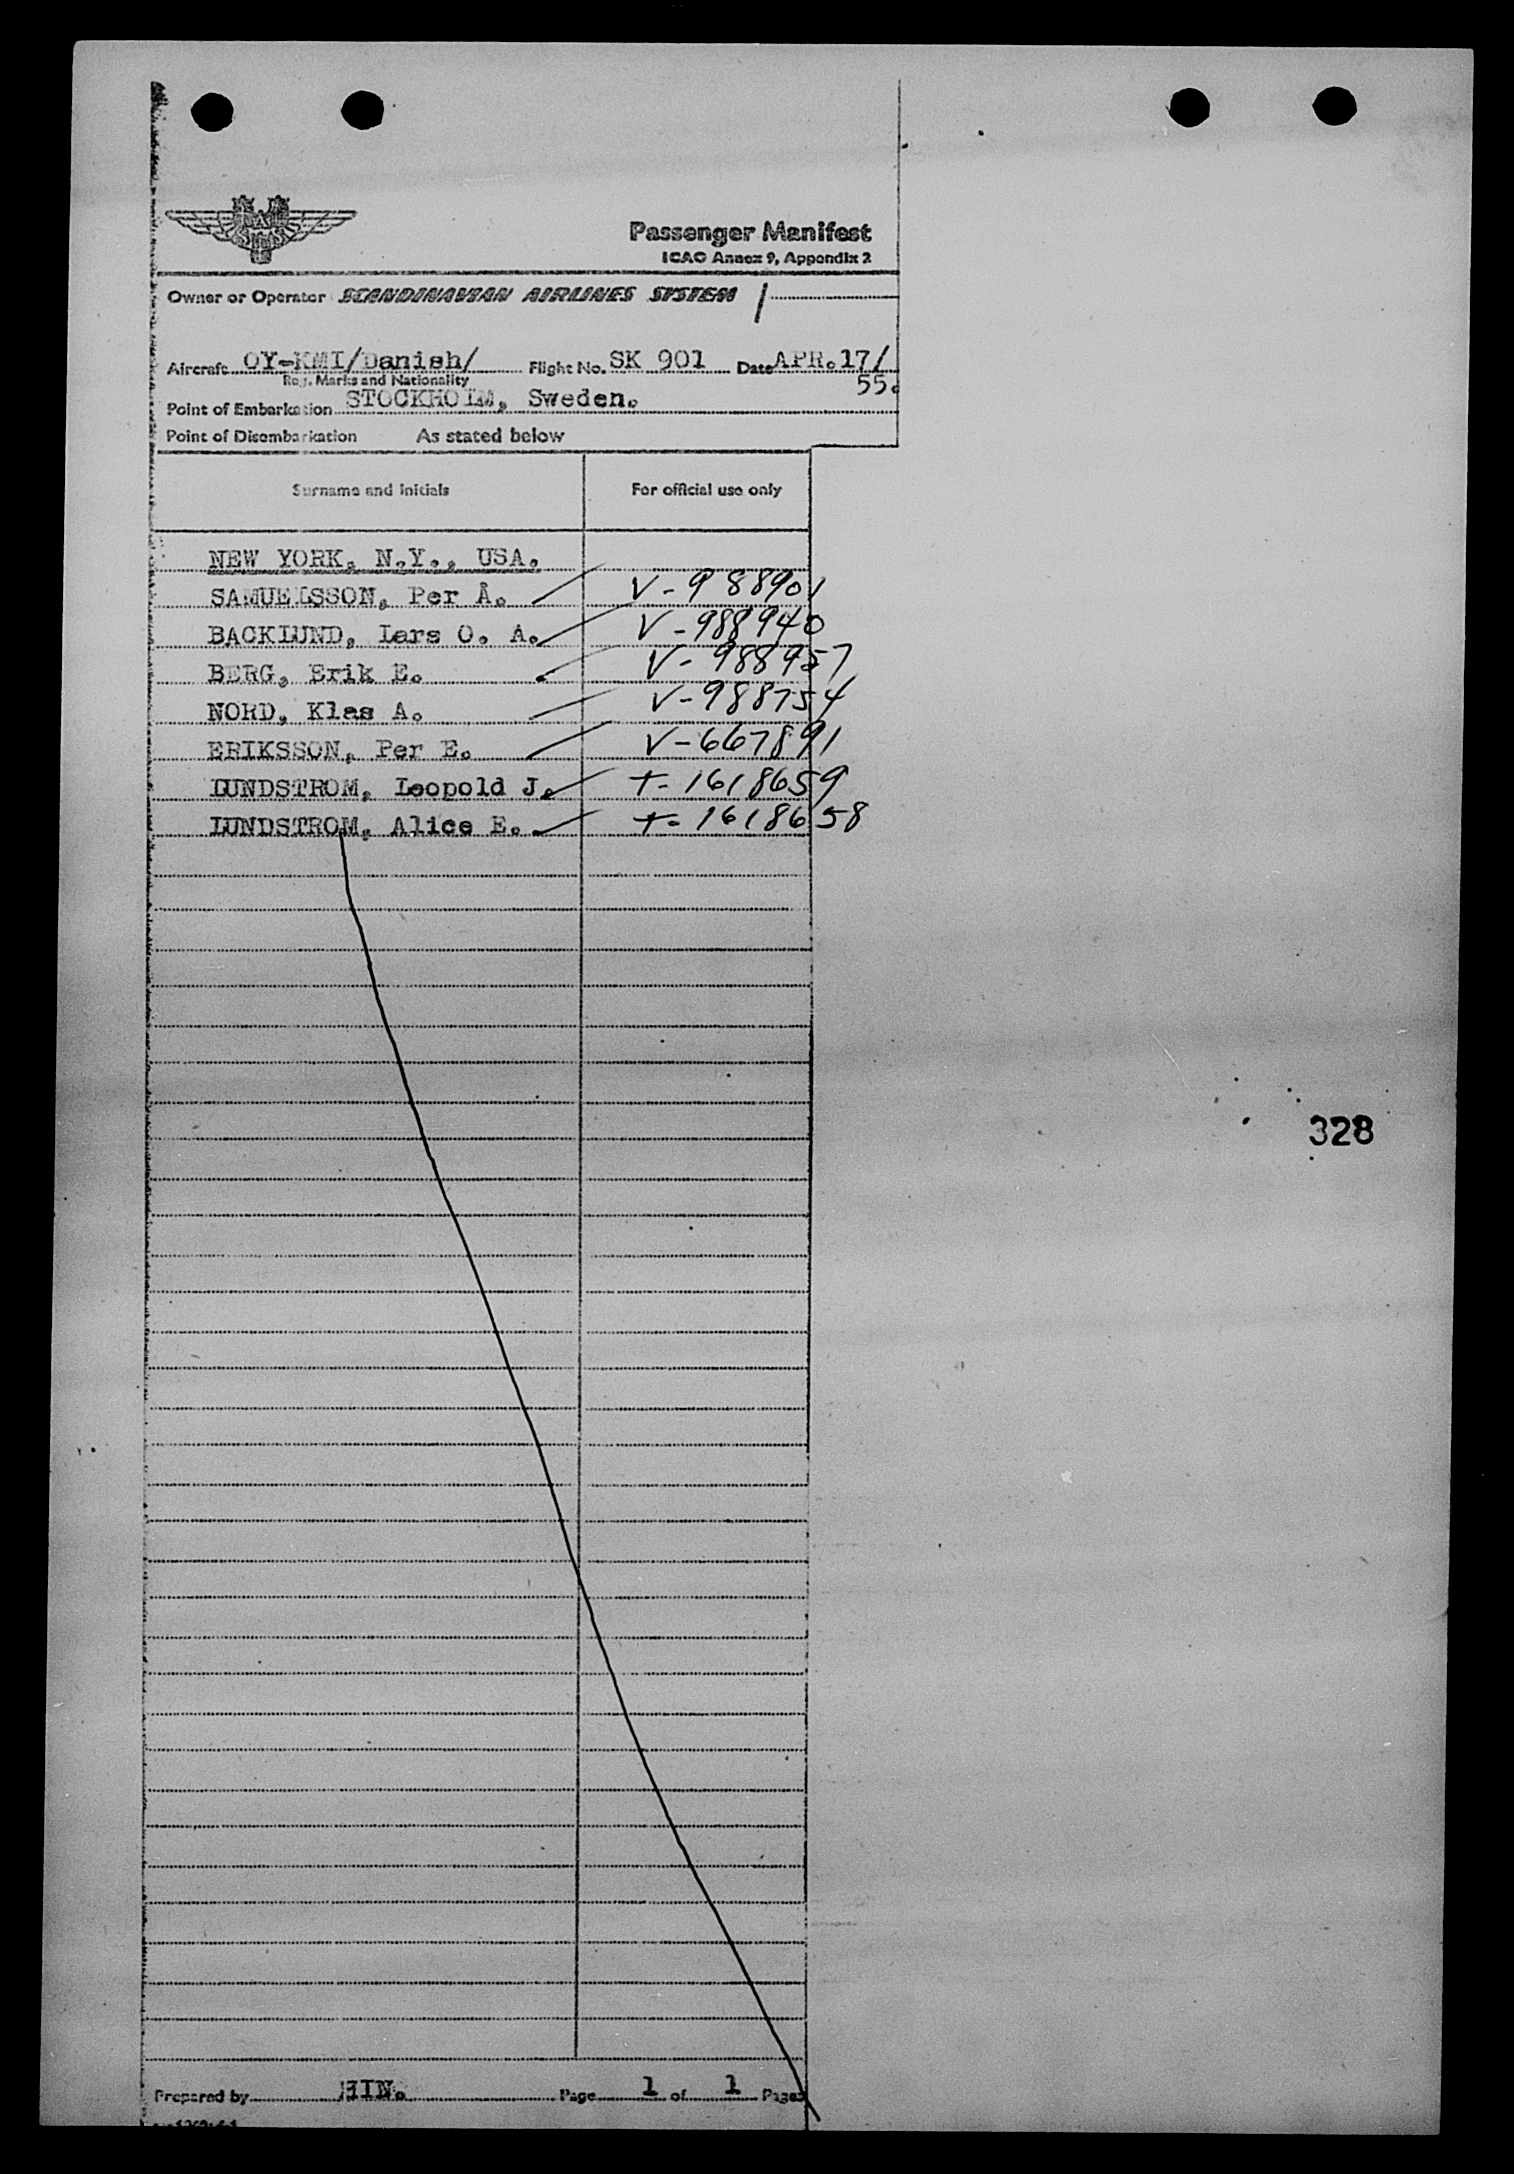 SAS
Passenger Manifest
ICAO Annex 9, Appendix 2
Owner or Operator SCANDINAVIAN AIRLINES SYSTEM /
Aircraft OY-KMI/Danish/ Flight No. SK 901 Date APR.17/
Reg. Marks and Nationality
55.
Point of Embarkation STOCKHOLM, Sweden.
Point of Disembarkation As stated below
Surname and initials For official use only
NEW YORK, N.Y., USA.
SAMUELSSON, Per Å. V-988901
BACKLUND, Lars O. A. V-988940
BERG, Erik E. V-988957
NORD, Klas A. V-988754
ERIKSSON, Per E. V-667891
LUNDSTROM, Leopold J. T-1618659
LUNDSTROM, Alice E. T-1618658
328
Prepared by Page 1 of 1 Pages